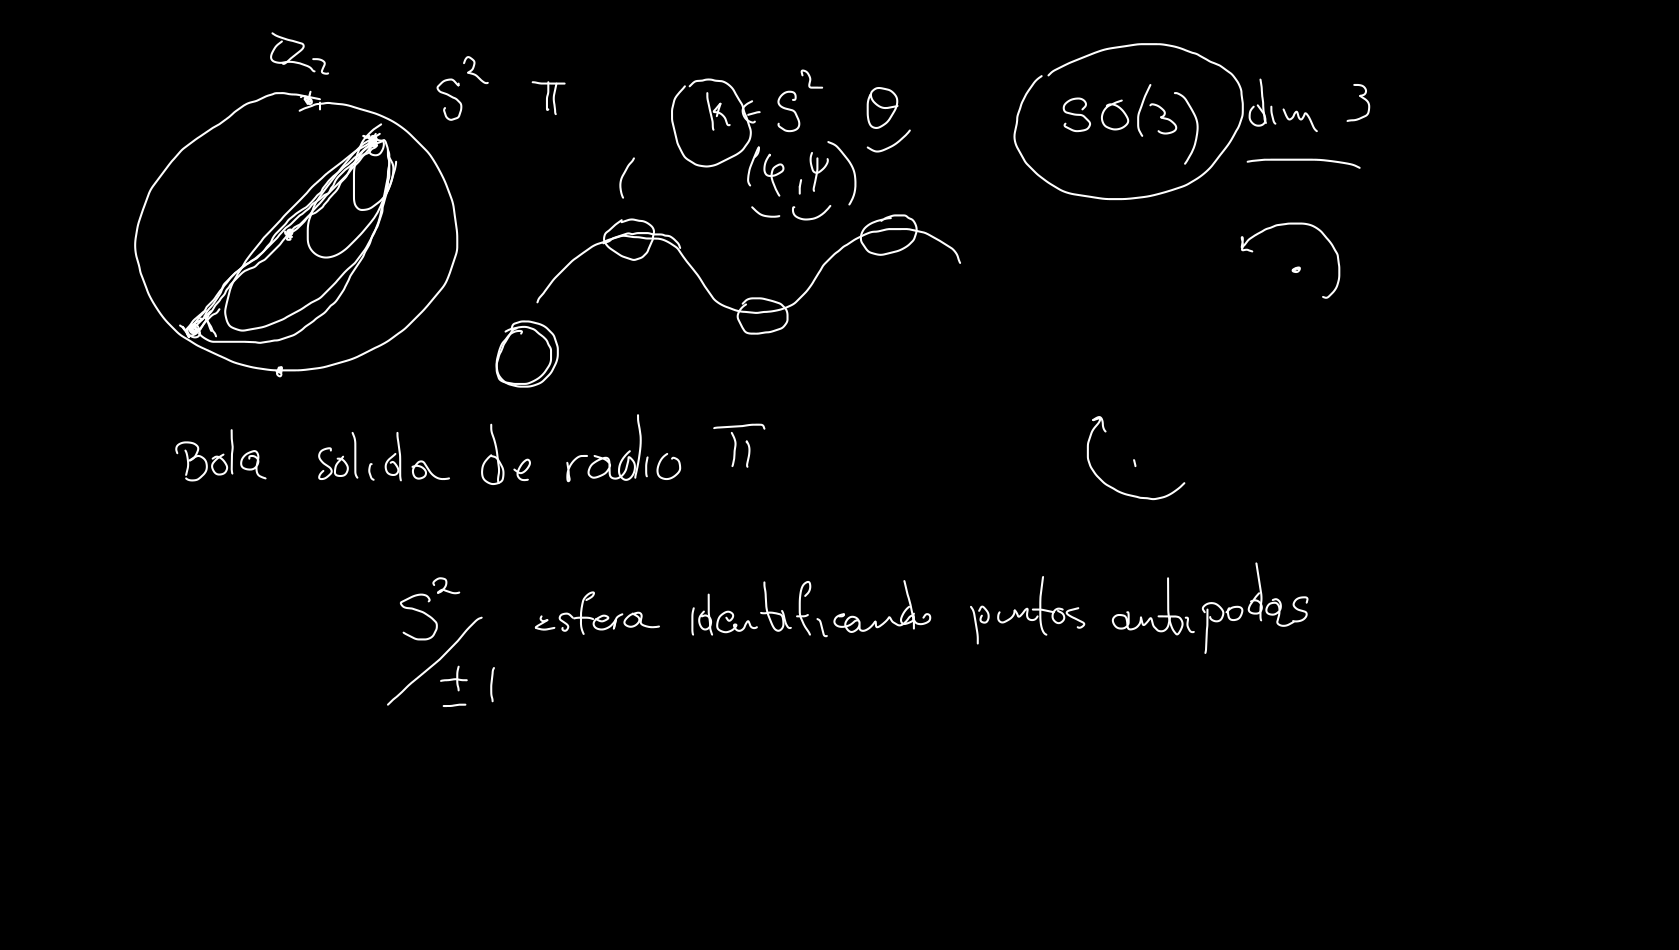 ℤ₂
S² π k ∈ S² θ SO(3) dim 3
(φ, ψ)
Bola solida de radio π
S²/±1 esfera identificando puntos antipodas